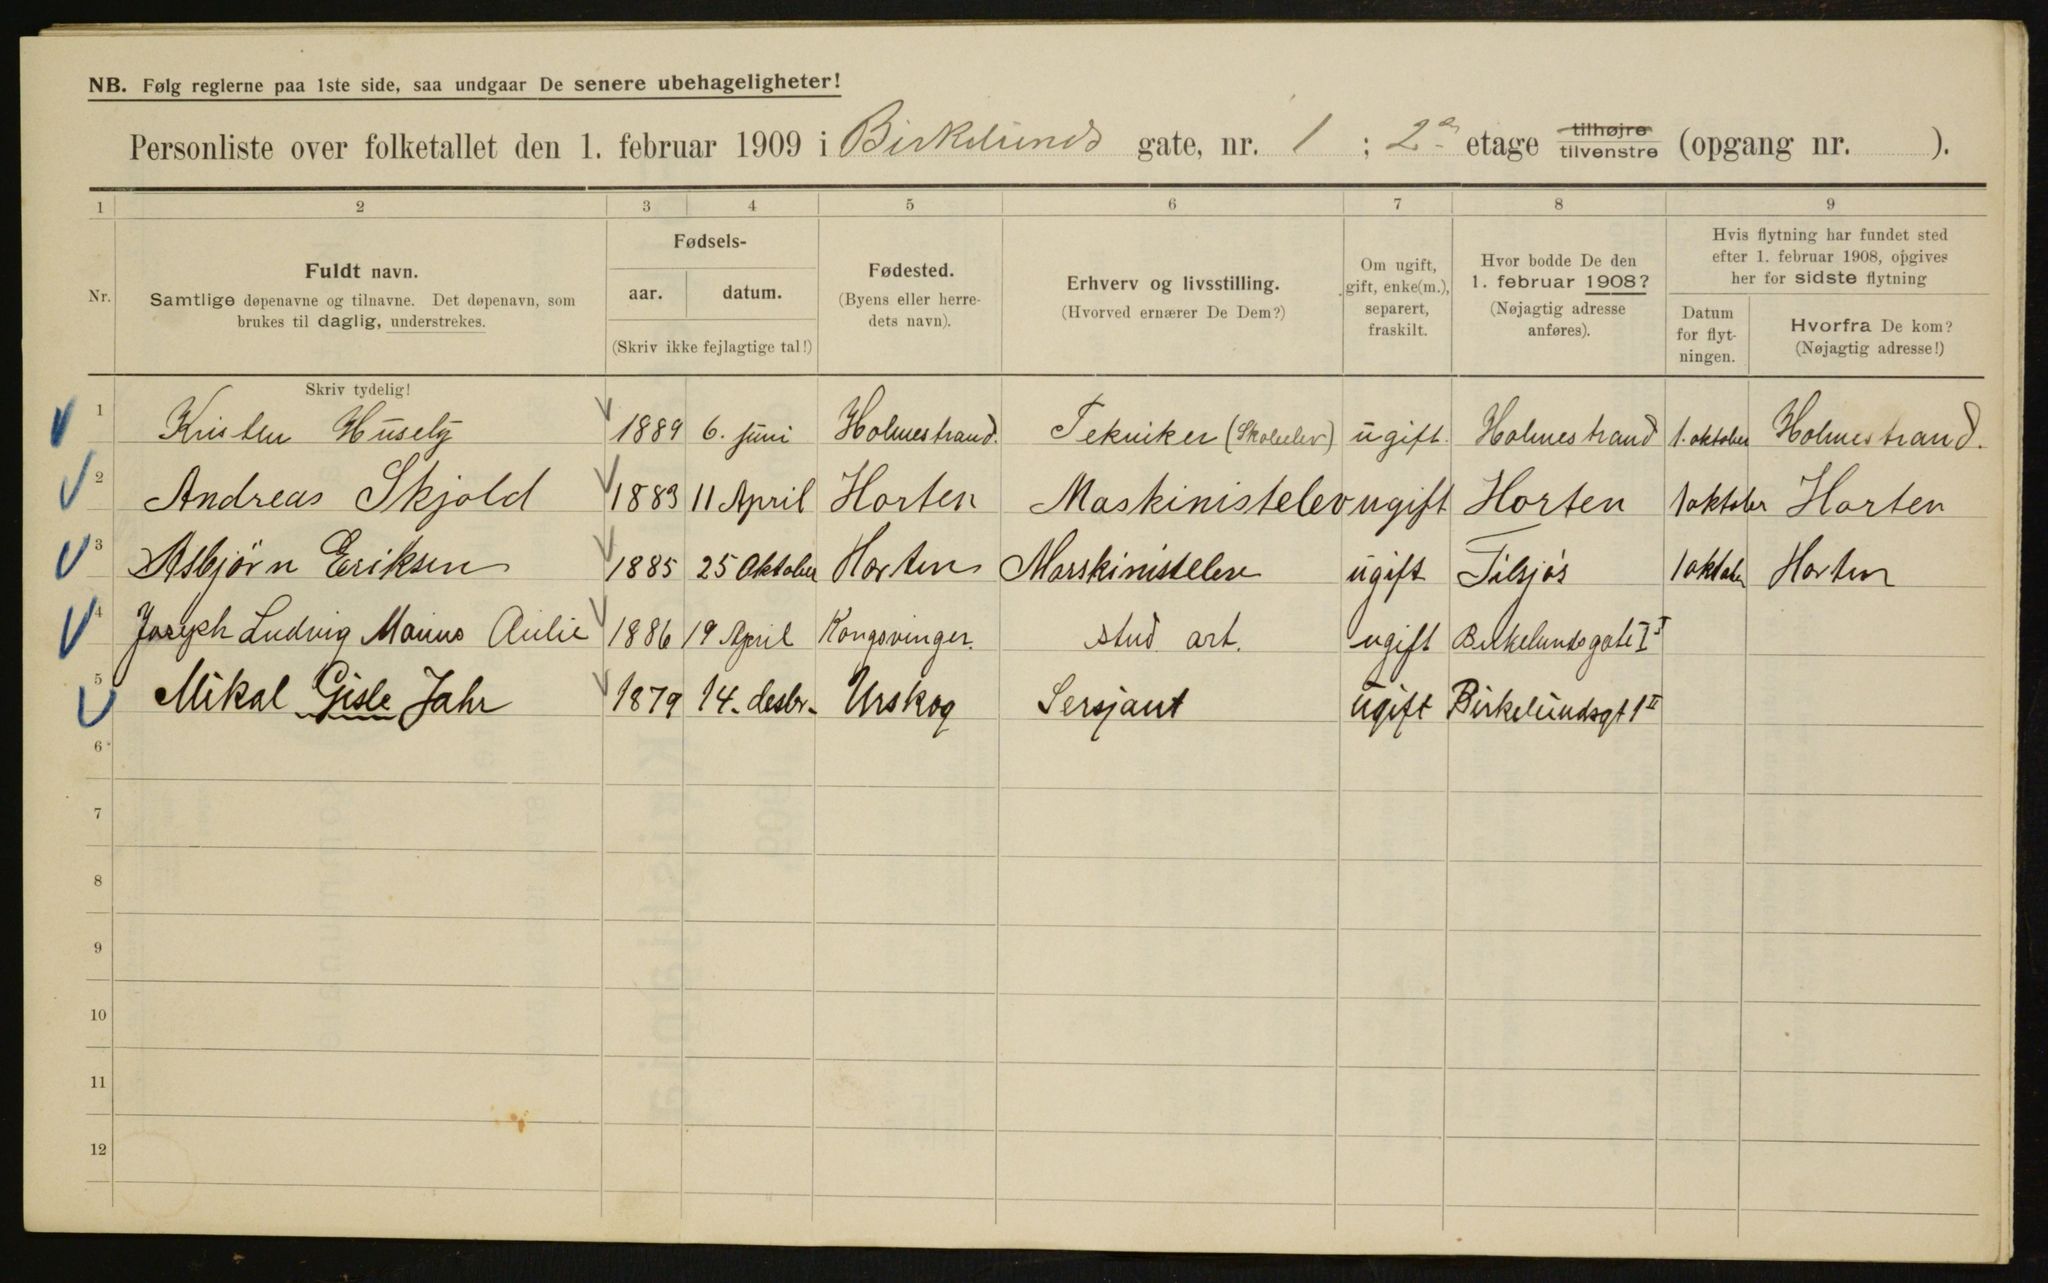 NB. Følg reglerne paa 1ste side, saa undgaar De senere ubehageligheter!
Personliste over folketallet den 1. februar 1909 i Birkelunds gate, nr. 1 ; 2 etage tilhøjre tilvenstre (opgang nr. ).
1 2 3 4 5 6 7 8 9
Nr.
Fuldt navn.
Samtlige døpenavne og tilnavne. Det døpenavn, som
brukes til daglig, understrekes.
Fødsels-
aar. datum.
(Skriv ikke fejlagtige tal!)
Fødested.
(Byens eller herre-
dets navn).
Erhverv og livsstilling.
(Hvorved ernærer De Dem?)
Om ugift,
gift, enke(m.),
separert,
fraskilt.
Hvor bodde De den
1. februar 1908?
(Nøjagtig adresse
anføres).
Hvis flytning har fundet sted
efter 1. februar 1908, opgives
her for sidste flytning
Datum
for flyt-
ningen.
Hvorfra De kom?
(Nøjagtig adresse!)
Skriv tydelig!
1 Kristen Huseby 1889 6. juni Holmestrand. Tekniker (Skoleelev) ugift. Holmestrand 1. oktober Holmestrand.
2 Andreas Skjold 1883 11 April Horten Maskinistelev ugift Horten 1 oktober Horten
3 Asbjørn Eriksen 1885 25 Oktober Horten Marskinistelev ugift Tilsjøs 1 oktober Horten
4 Joseph Ludvig Aulie 1886 19 April Kongsvinger. stud art. ugift Birkelundsgate 1
5 Mikal Gisle Jahr 1879 14. desbr. Urskog Sersjant ugift Birkelundsgt 1 II
6
7
8
9
10
11
12